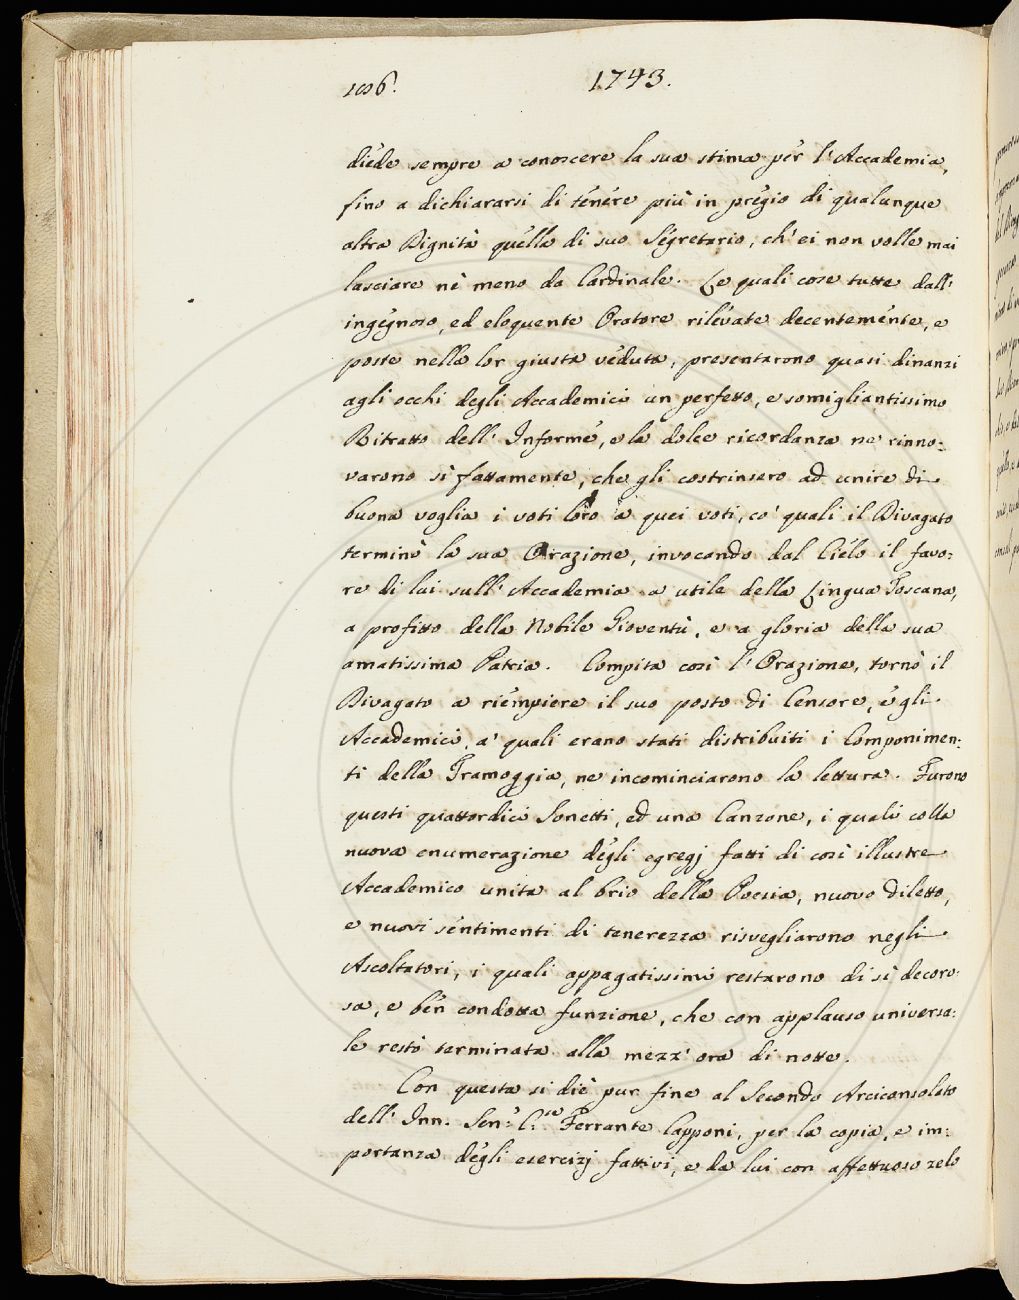 106.
1743.
diede sempre a conoscere la sua stima per l'Accademia,
fino a dichiararsi di tenere più in pregio di qualunque
altra Dignità quella di suo Segretario, ch'ei non volle mai
lasciare nè meno da Cardinale. Le quali cose tutte dall'
ingegnoso, ed eloquente Oratore rilevate decentemente, e
poste nella lor giusta veduta, presentarono quasi dinanzi
agli occhi degli Accademici un perfetto, e somigliantissimo
Ritratto dell'Informe, e la dolce ricordanza ne rinno=
varono sì fattamente, che gli costrinsero ad unire di
buona voglia i voti loro a quei voti, co' quali il Divagato
terminò la sua Orazione, invocando dal Cielo il favo=
re di lui sull'Accademia a utile della Lingua Toscana,
a profitto della Nobile Gioventù, e a gloria della sua
amatissima Patria. Compita così l'Orazione, tornò il
Divagato a riempiere il suo posto di Censore, e gli
Accademici, a' quali erano stati distribuiti i Componimen=
ti della Tramoggia, ne incominciarono la lettura. Furono
questi quattordici Sonetti, ed una Canzone, i quali colla
nuova enumerazione degli egregj fatti di così illustre
Accademico unita al brio della Poesia, nuovo diletto,
e nuovi sentimenti di tenerezza risvegliarono negli
Ascoltatori, i quali appagatissimi restarono di sì decoro=
sa, e ben condotta funzione, che con applauso universa=
le restò terminata alla mezz'ora di notte.
Con questa si diè pur fine al Secondo Arciconsolato
dell'Inn. Sen.r C.re Ferrante Capponi, per la copia, e im=
portanza degli esercizj fattivi, e da lui con affettuoso zelo